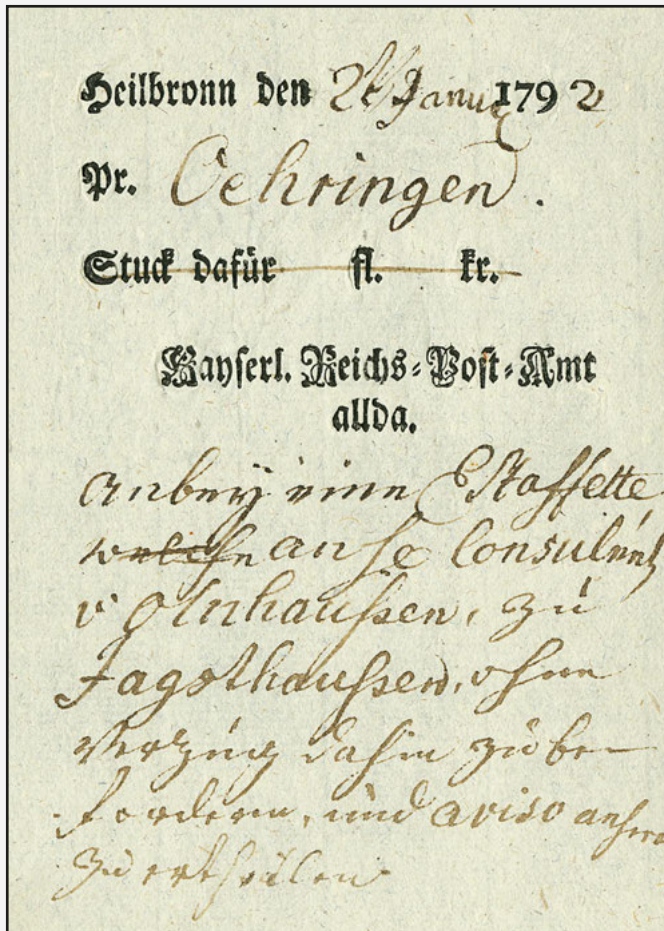 Heilbronn den 2t Janua 1792
Pr. Oehringen.
Stuck dafür fl. kr.
Kayserl. Reichs-Post-Amt
allda.
anbey eine Estaffette,
welche an H Consulent
v Olnhaussen, zu
Jagsthaussen, ohne
Verzug dahin zu be-
fordern, und aviso anhero
zu ertheilen